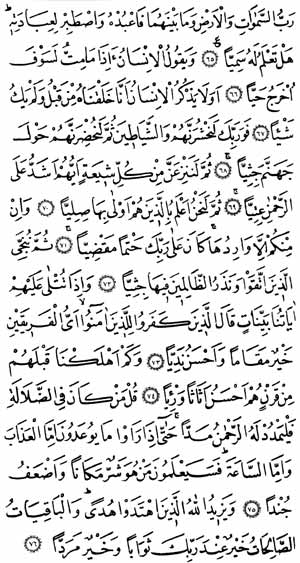 رَبُّ السَّمٰوَاتِ وَالْاَرْضِ وَمَا بَيْنَهُمَا فَاعْبُدْهُ وَاصْطَبِرْ لِعِبَادَتِهِۜ
هَلْ تَعْلَمُ لَهُ سَمِيًّا ﴿٦٥﴾ وَيَقُولُ الْاِنْسَانُ ءَاِذَا مَامِتُّ لَسَوْفَ
اُخْرَجُ حَيًّا ﴿٦٦﴾ اَوَلَا يَذْكُرُ الْاِنْسَانُ اَنَّا خَلَقْنَاهُ مِنْ قَبْلُ وَلَمْ يَكُ
شَيْـًٔا ﴿٦٧﴾ فَوَرَبِّكَ لَنَحْشُرَنَّهُمْ وَالشَّيَاطٖينَ ثُمَّ لَنُحْضِرَنَّهُمْ حَوْلَ
جَهَنَّمَ جِثِيًّا ﴿٦٨﴾ ثُمَّ لَنَنْزِعَنَّ مِنْ كُلِّ شٖيعَةٍ اَيُّهُمْ اَشَدُّ عَلَى
الرَّحْمٰنِ عِتِيًّا ﴿٦٩﴾ ثُمَّ لَنَحْنُ اَعْلَمُ بِالَّذٖينَ هُمْ اَوْلٰى بِهَا صِلِيًّا ﴿٧٠﴾ وَاِنْ
مِنْكُمْ اِلَّا وَارِدُهَا كَانَ عَلٰى رَبِّكَ حَتْمًا مَقْضِيًّا ﴿٧١﴾ ثُمَّ نُنَجِّى
الَّذٖينَ اتَّقَوْا وَنَذَرُ الظَّالِمٖينَ فٖيهَا جِثِيًّا ﴿٧٢﴾ وَاِذَا تُتْلٰى عَلَيْهِمْ
اٰيَاتُنَا بَيِّنَاتٍ قَالَ الَّذٖينَ كَفَرُوا لِلَّذٖينَ اٰمَنُوا اَىُّ الْفَرٖيقَيْنِ
خَيْرٌ مَقَامًا وَاَحْسَنُ نَدِيًّا ﴿٧٣﴾ وَكَمْ اَهْلَكْنَا قَبْلَهُمْ
مِنْ قَرْنٍ هُمْ اَحْسَنُ اَثَاثًا وَرِءْيًا ﴿٧٤﴾ قُلْ مَنْ كَانَ فِى الضَّلَالَةِ
فَلْيَمْدُدْ لَهُ الرَّحْمٰنُ مَدًّا حَتّٰى اِذَا رَاَوْا مَا يُوعَدُونَ اِمَّا الْعَذَابَ
وَاِمَّا السَّاعَةَ فَسَيَعْلَمُونَ مَنْ هُوَ شَرٌّ مَكَانًا وَاَضْعَفُ
جُنْدًا ﴿٧٥﴾ وَيَزٖيدُ اللّٰهُ الَّذٖينَ اهْتَدَوْا هُدًى وَالْبَاقِيَاتُ
الصَّالِحَاتُ خَيْرٌ عِنْدَ رَبِّكَ ثَوَابًا وَخَيْرٌ مَرَدًّا ﴿٧٦﴾